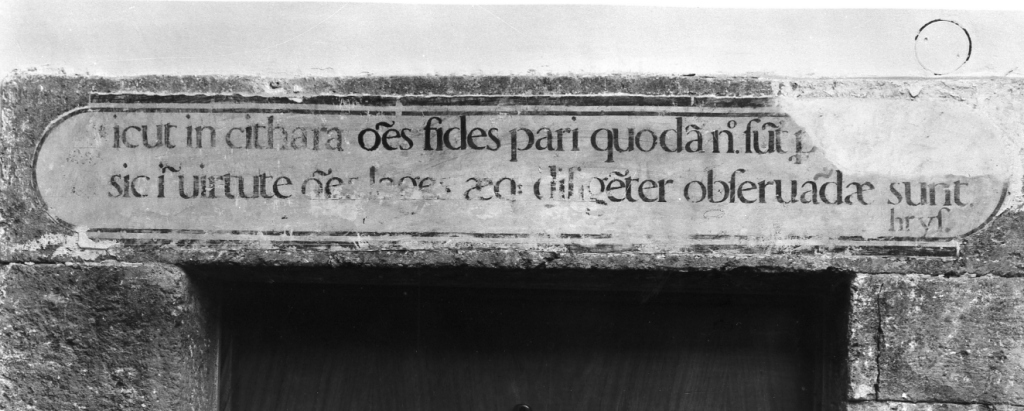 icut in cithara õēs fides pari quodā n̊. ſūt p
sic ī uirtute õēs leges æq; diligēter obſeruādæ sunt.
hryſ.